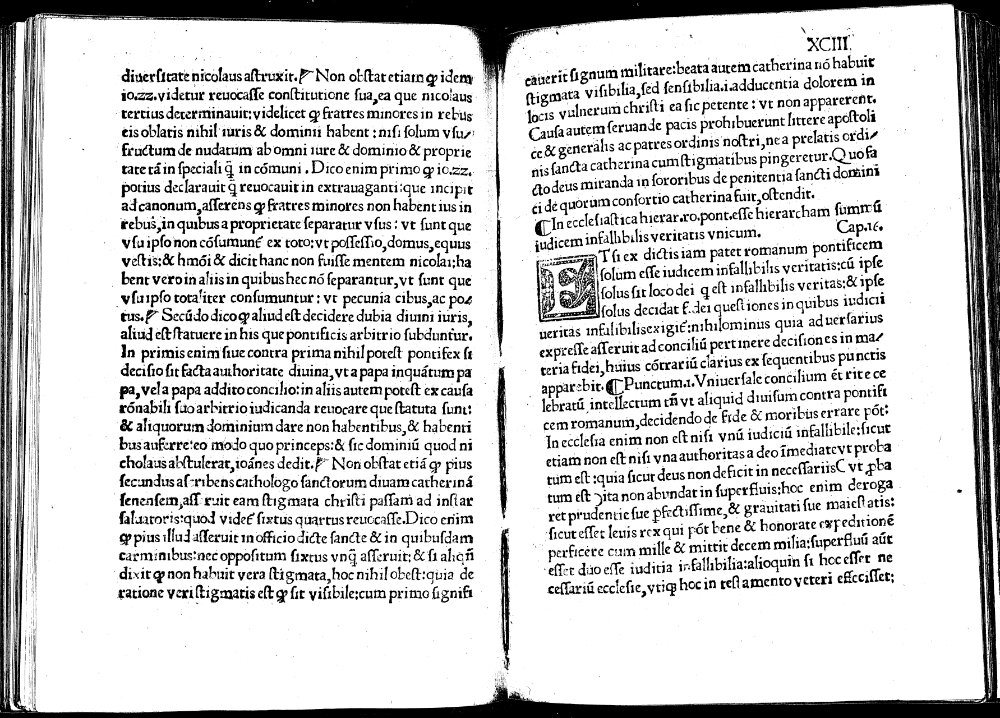 diuersitate nicolaus astruxit. Non obstat etiam ꝙ idem
io.22. videtur reuocasse constitutione sua, ea que nicolaus
tertius determinauit: videlicet ꝙ fratres minores in rebus
eis oblatis nihil iuris & dominii habent: nisi solum vsu/
fructum de nudatum ab omni iure & dominio & proprie
tate tā in speciali q̄ in cōmuni. Dico enim primo ꝙ io.22.
potius declarauit q̄ reuocauit in extrauaganti: que incipit
ad canonum, asserens ꝙ fratres minores non habent ius in
rebus, in quibus a proprietate separatur vsus: vt sunt que
vsu ipso non cōsumunt̄ ex toto: vt possessio, domus, equus
vestis: & hmōi & dicit hanc non fuisse mentem nicolai; ha
bent vero in aliis in quibus hec nō separantur, vt sunt que
vsu ipso totaliter consumuntur: vt pecunia cibus, ac po/
tus. Secūdo dico ꝙ aliud est decidere dubia diuini iuris,
aliud est statuere in his que pontificis arbitrio subduntur.
In primis enim siue contra prima nihil potest pontifex si
decisio sit facta authoritate diuina, vt a papa inquātum pa
pa, vel a papa addito concilio: in aliis autem potest ex causa
rōnabili suo arbitrio iudicanda reuocare que statuta sunt:
& aliquorum dominium dare non habentibus, & habenti
bus auferre: eo modo quo princeps: & sic dominiū quod ni
cholaus abstulerat, ioānes dedit. Non obstat etiā ꝙ pius
secundus ascribens cathologo sanctorum diuam catherinā
senensem, asseruit eam stigmata christi passam ad instar
saluatoris: quod videt̄ sixtus quartus reuocasse. Dico enim
ꝙ pius illud asseruit in officio dicte sancte & in quibusdam
carminibus: nec oppositum sixtus vnq̄ asseruit: & si aliqn̄
dixit ꝙ non habuit vera stigmata, hoc nihil obest: quia de
ratione veri stigmatis est ꝙ sit visibile: cum primo signifi
XCIII
cauerit signum militare: beata autem catherina nō habuit
stigmata visibilia, sed sensibilia .i. adducentia dolorem in
locis vulnerum christi ea sic petente: vt non apparerent.
Causa autem seruande pacis prohibuerunt littere apostoli
ce & generalis ac patres ordinis nostri, ne a prelatis ordi/
nis sancta catherina cum stigmatibus pingeretur. Quo fa
cto deus miranda in sororibus de penitentia sancti domini
ci de quorum consortio catherina fuit, ostendit.
¶In ecclesiastica hierar. ro. pont. esse hierarcham summū
iudicem infallibilis veritatis vnicum. Cap.16.
ETsi ex dictis iam patet romanum pontificem
solum esse iudicem infallibilis veritatis: cū ipse
solus sit loco dei q est infallibilis veritas: & ipse
solus decidat fidei questiones in quibus iudicii
ueritas infallibilis exigit̄: nihilominus quia aduersarius
expresse asseruit ad conciliū pertinere decisiones in ma/
teria fidei, huius cōtrariū clarius ex sequentibus punctis
apparebit. ¶Punctum.1. Vniuersale concilium et̄ rite ce
lebratū, intellectum tn̄ vt aliquid diuisum contra pontifi
cem romanum, decidendo de fide & moribus errare pōt:
In ecclesia enim non est nisi vnū iudiciū infallibile: sicut
etiam non est nisi vna authoritas a deo īmediate vt proba
tum est: quia sicut deus non deficit in necessariis C vt ꝓba
tum est ꝯita non abundat in superfluis: hoc enim deroga
ret prudentie sue ꝑfectissime, & grauitati sue maiestatis:
sicut esset leuis rex qui pōt bene & honorate expeditionē
perficere cum mille & mittit decem milia: superfluū aūt
esset duo esse iuditia infallibilia: alioquin si hoc esset ne
cessariū ecclesie, vtiqꝫ hoc in testamento veteri effecisset;